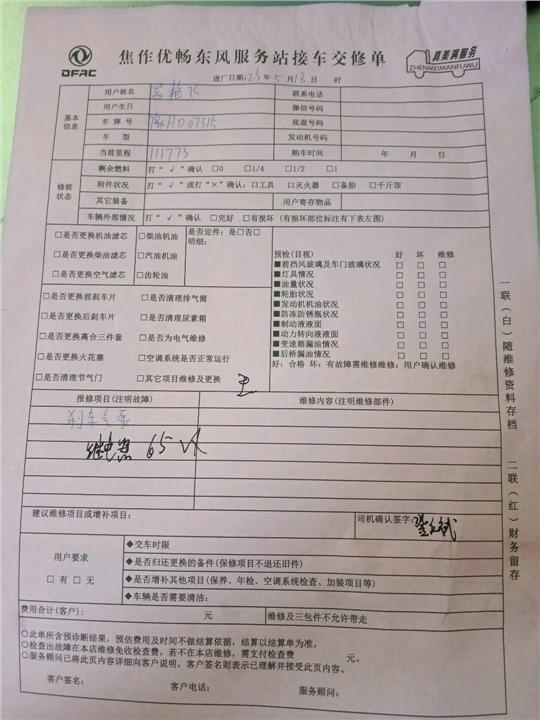 DFAC
焦作优畅东风服务站接车交修单
真美满服务
ZHENMEIMANFUWU
进厂日期: 25 年 5 月 18 日 时
基本信息
用户姓名
联系电话
用户生日
微信号码
车牌号 豫HD07315
底盘号码
车型
发动机号码
当前里程 111773
购车时间 年 月 日
修前状态
剩余燃料 打“√”确认 □0 □1/4 □1/2 □1
附件状况 打“√”或打“×”确认: □工具 □灭火器 □备胎 □千斤顶
其它装备
用户寄存物品
车辆外部情况 打“√”确认 □完好 □有损坏(有损部位标注有下表左图)
□是否更换机油滤芯 □柴油机油
□是否更换柴油滤芯 □汽油机油
□是否更换空气滤芯 □齿轮油
是否定件: 是□否□
明细:
□是否更换前刹车片 □是否清理排气筒
□是否更换后刹车片 □是否清理尿素箱
□是否更换离合三件套 □是否为电气维修
□是否更换火花塞 □空调系统是否正常运行
□是否清理节气门 □其它项目维修及更换
预检(目视) 好 坏 维修
■前挡风玻璃及车门玻璃状况 □ □ □
■灯具情况 □ □ □
■油量状况 □ □ □
■轮胎状况 □ □ □
■发动机机油状况 □ □ □
■防冻防锈瓶状况 □ □ □
■制动液液面 □ □ □
■动力转向液液面 □ □ □
■变速箱漏油情况 □ □ □
■后桥漏油情况 □ □ □
好: 合格 坏: 有故障需维修维修: 用户确认维修
报修项目(注明故障)
维修内容(注明维修部件)
刹车气泵
继电器 65
建议维修项目或增补项目:
司机确认签字:
用户要求
□有 □无
◆交车时限
◆是否归还更换的备件(保修项目不退还旧件)
◆是否增补其他项目(保养、年检、空调系统检查、加装项目等)
◆车辆是否需要清洁:
费用合计(客户): 元
维修及三包件不允许带走
○此单所含预诊断结果,预估费用及时间不做结算依据,结算以结算单为准。
○检查出故障在本店维修免收检查费,若不在本店维修,需支付检查费 元。
○服务顾问已将此页内容详细向客户说明,客户签名则表示已理解并接受此页内容。
客户签名:
客户电话:
服务顾问:
一联(白)随维修资料存档
二联(红)财务留存